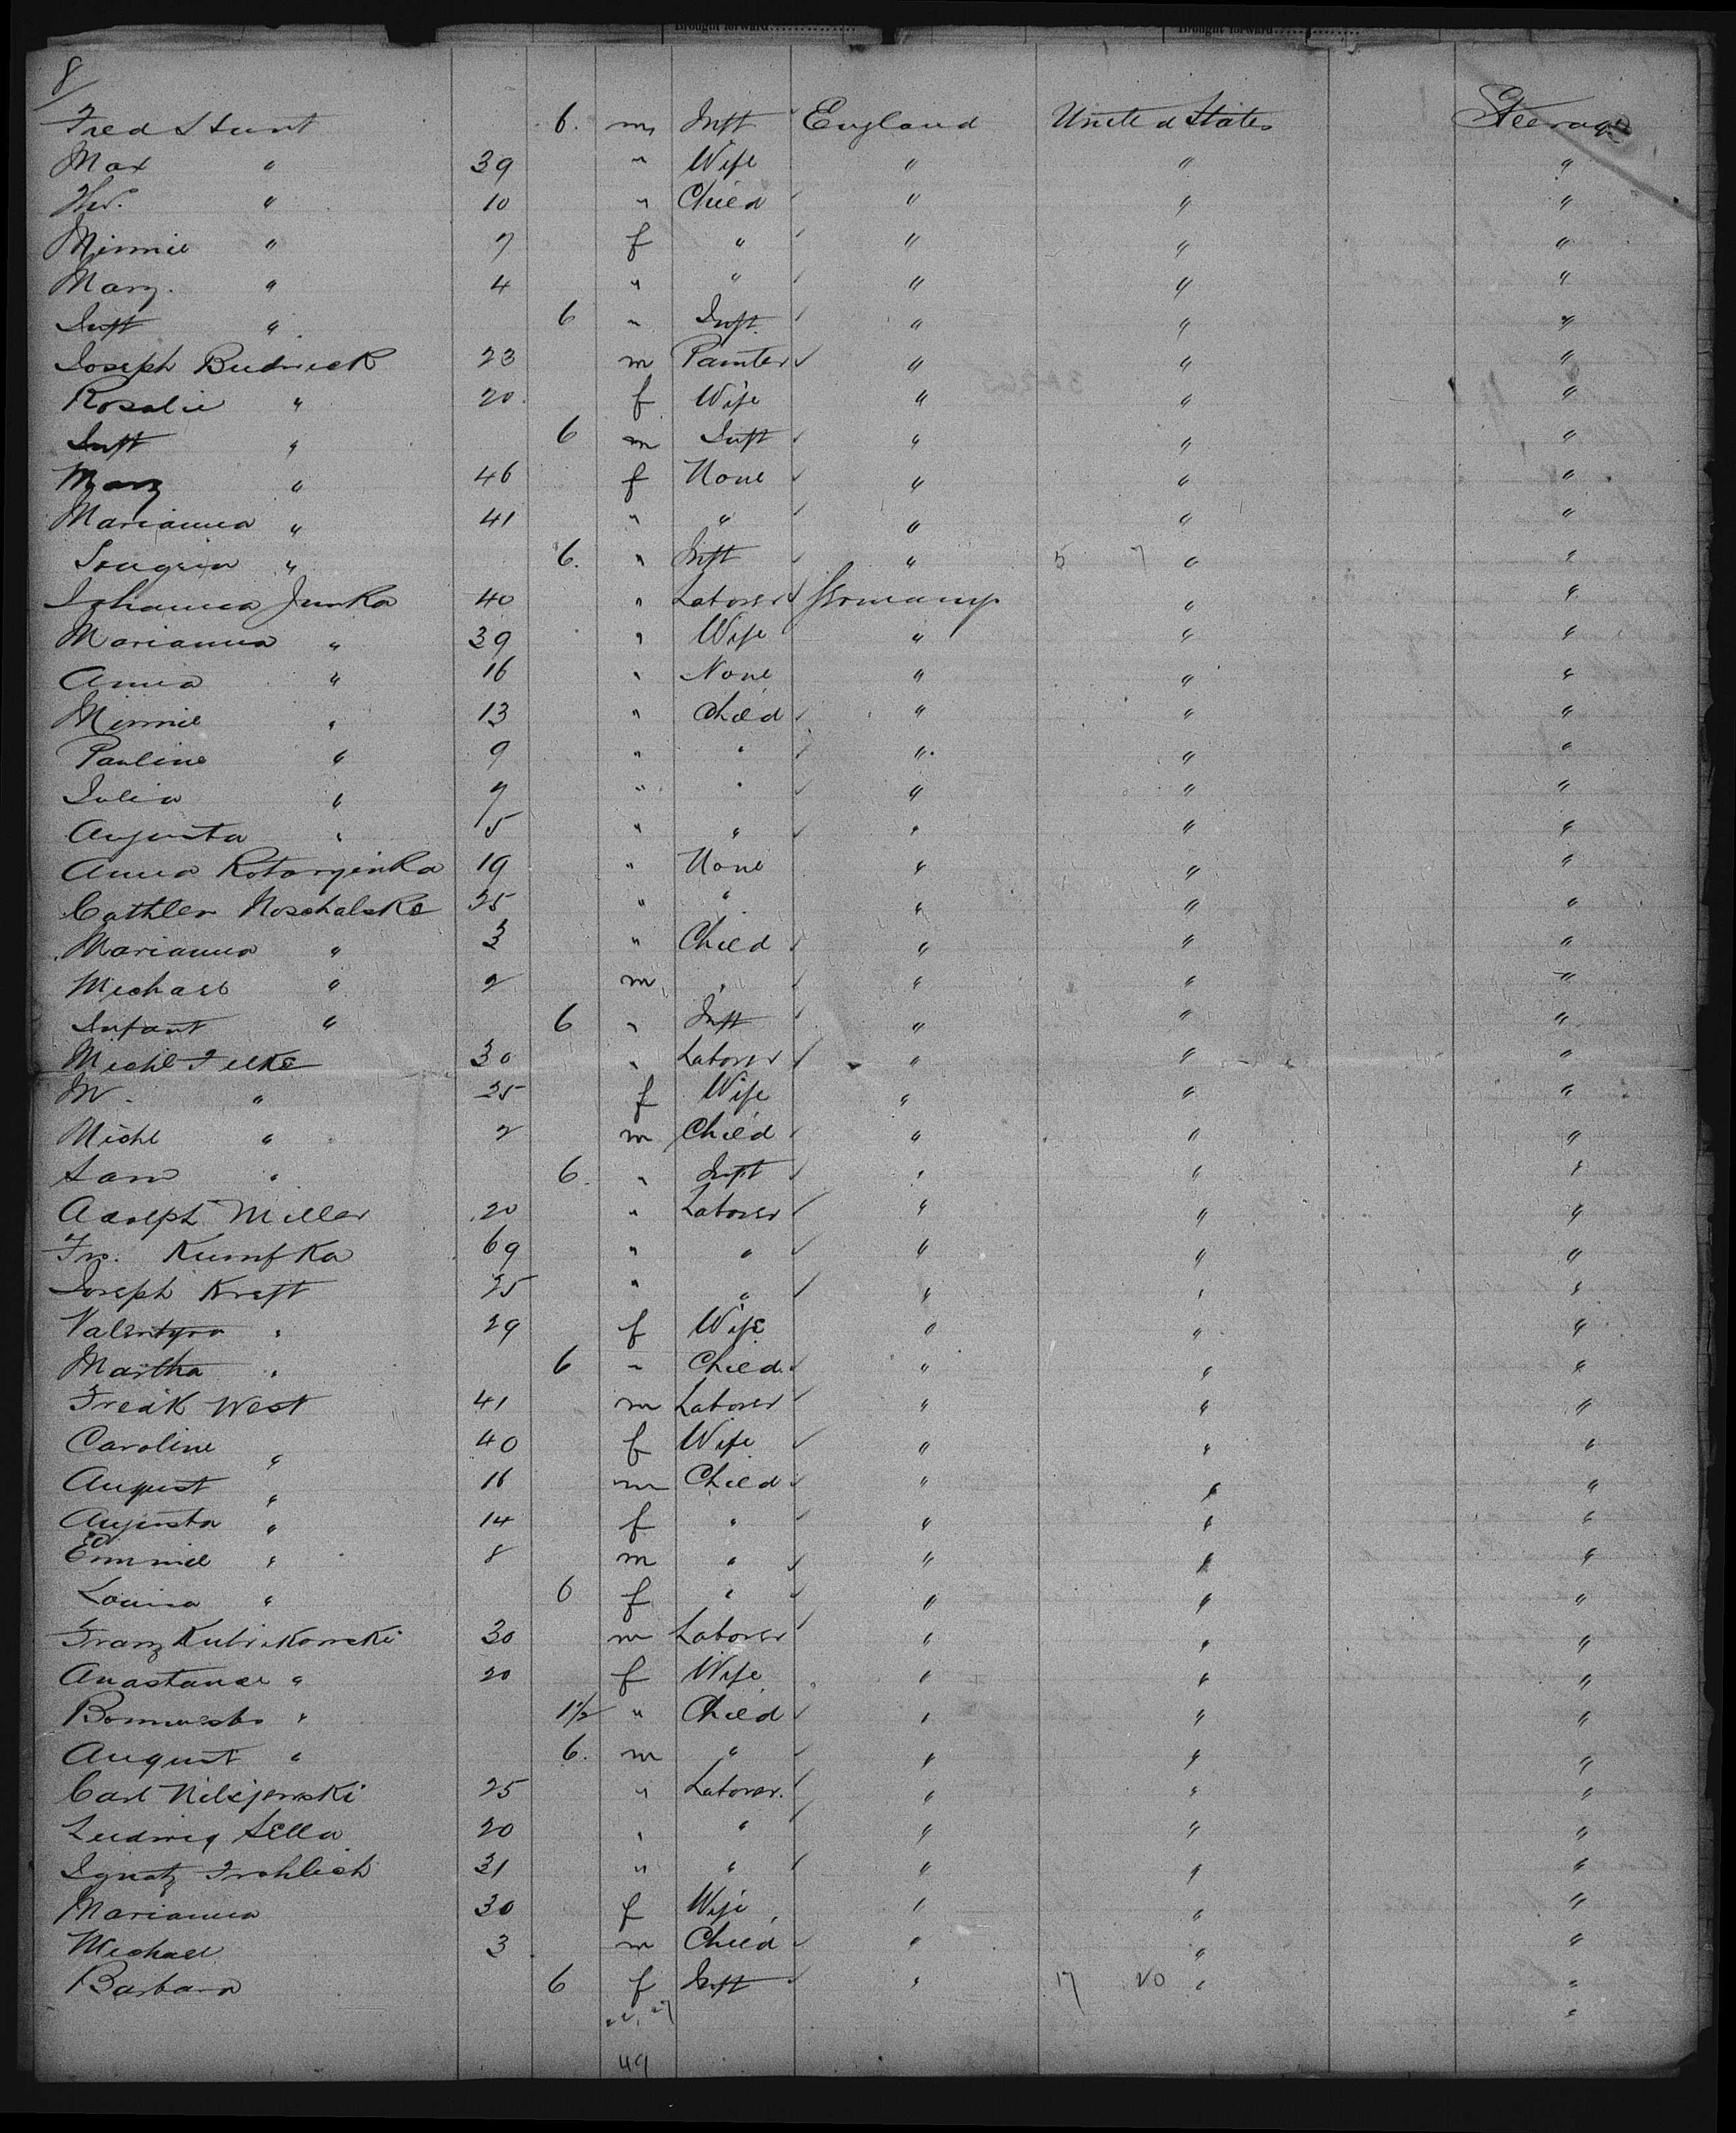 Brought forward.............. Brought forward..............
8/
Fred Hunt 6. m Inft England United States Steerage
Max " 39 " Wife " " "
Wm. " 10 " Child " " "
Minnie " 7 f " " " "
Mary. " 4 " " " " "
Inft " 6 " Inft. " " "
Joseph Budnick 23 m Painter " " "
Rosalie " 20. f Wife " " "
Inft " 6 m Inft " " "
Mary " 46 f None " " "
Marianna " 41 " " " " "
" 6. " Inft " 5 7 " "
Johanna Junka 40 " Laborer Germany " "
Marianna " 39 " Wife " " "
Anna " 16 " None " " "
Minnie " 13 " Child " " "
Pauline " 9 " " " " "
Julia " 7 " " " " "
Augusta " 5 " " " " "
Anna 19 " None " " "
Cathler Noschalske 25 " " " " "
Marianna " 3 " Child " " "
Michael " 2 m " " " "
Infant " 6 " Inft " " "
Michl Filke 30 " Laborer " " "
M. " 25 f Wife " " "
Michl " 2 m Child " " "
Sam " 6. " Inft " " "
Adolph Miller 20 " Laborer " " "
Frs. Kumfka 69 " " " " "
Joseph Kreft 25 " " " " "
Valentyna " 29 f Wife " " "
Martha " 6 " Child " " "
Fredk West 41 m Laborer " " "
Caroline " 40 f Wife " " "
August " 16 m Child " " "
Augusta " 14 f " " " "
Emmiel " 8 m " " " "
Louisa " 6 f " " " "
Franz Kubikowski 30 m Laborer " " "
Anastanse " 20 f Wife " " "
" 1½ " Child " " "
August " 6. m " " " "
Carl 25 " Laborer. " " "
Ludwig Sella 20 " " " " "
Ignatz Frohlich 31 " " " " "
Marianna 30 f Wife " " "
Michael 3 m Child " " "
Barbara 6 f Inft " 17 20 " "
"
49